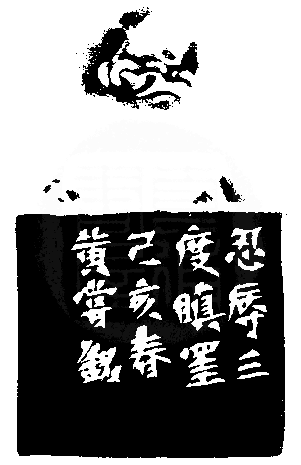 忍辱三
度瞋罣
己亥春
黄嘗銘